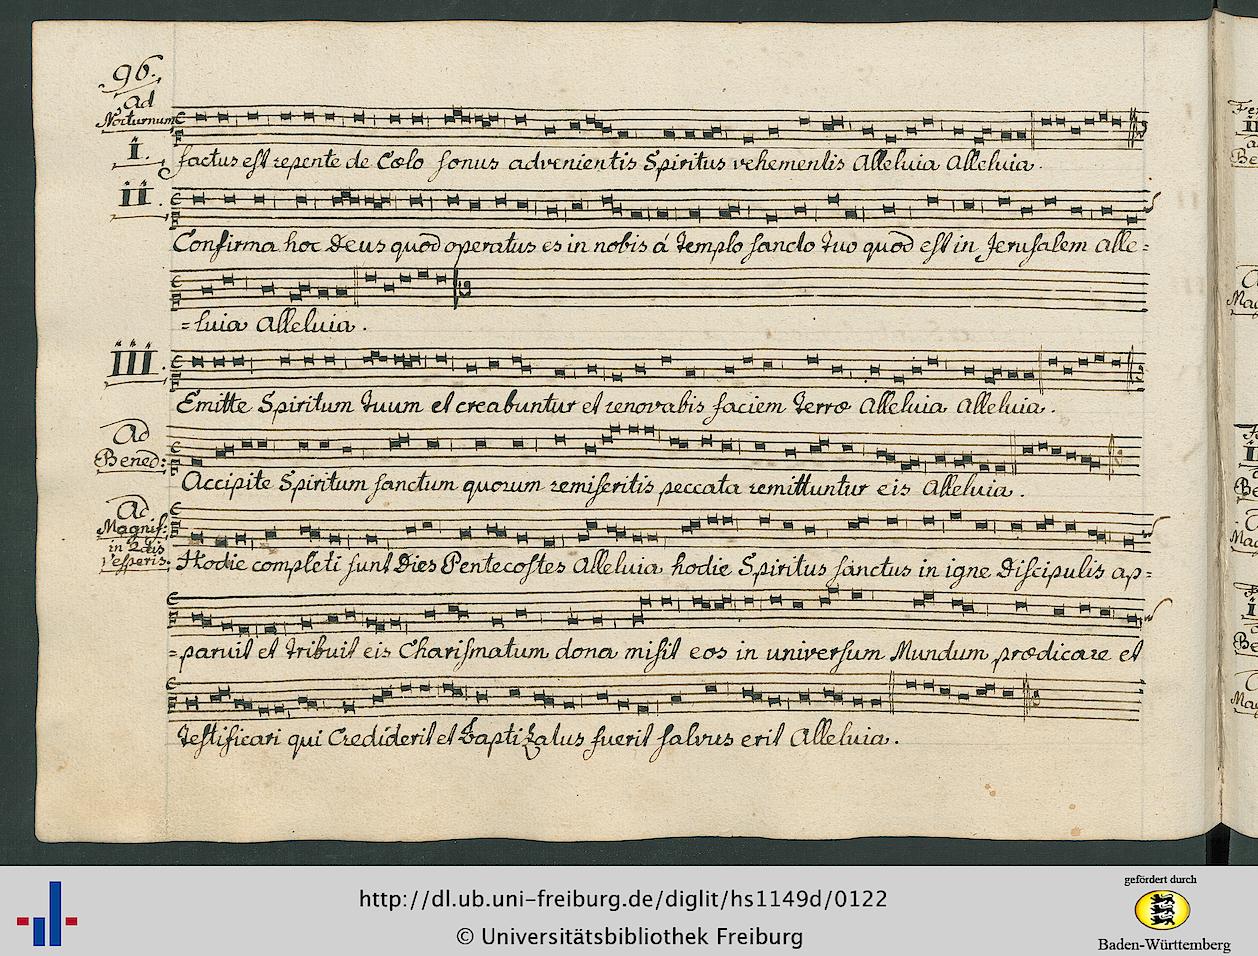 96.
Ad
Nocturnum
I.
factus est repente de Cœlo sonus advenientis Spiritus vehementis Alleluia Alleluia.
II.
Confirma hoc Deus quod operatus es in nobis á templo sancto tuo quod est in Jerusalem alle=
=luia Alleluia.
III.
Emitte Spiritum tuum et creabuntur et renovabis faciem terræ Alleluia Alleluia.
Ad
Bened:
Accipite Spiritum sanctum quorum remiseritis peccata remittuntur eis Alleluia.
Ad
Magnif:
in 2dis
vesperis.
Hodie completi sunt Dies Pentecostes Alleluia hodie Spiritus sanctus in igne Discipulis ap=
=paruit et tribuit eis Charismatum dona misit eos in universum Mundum prædicare et
testificari qui Crediderit et baptizatus fuerit salvus erit Alleluia.
http://dl.ub.uni-freiburg.de/diglit/hs1149d/0122
© Universitätsbibliothek Freiburg
gefördert durch
Baden-Württemberg